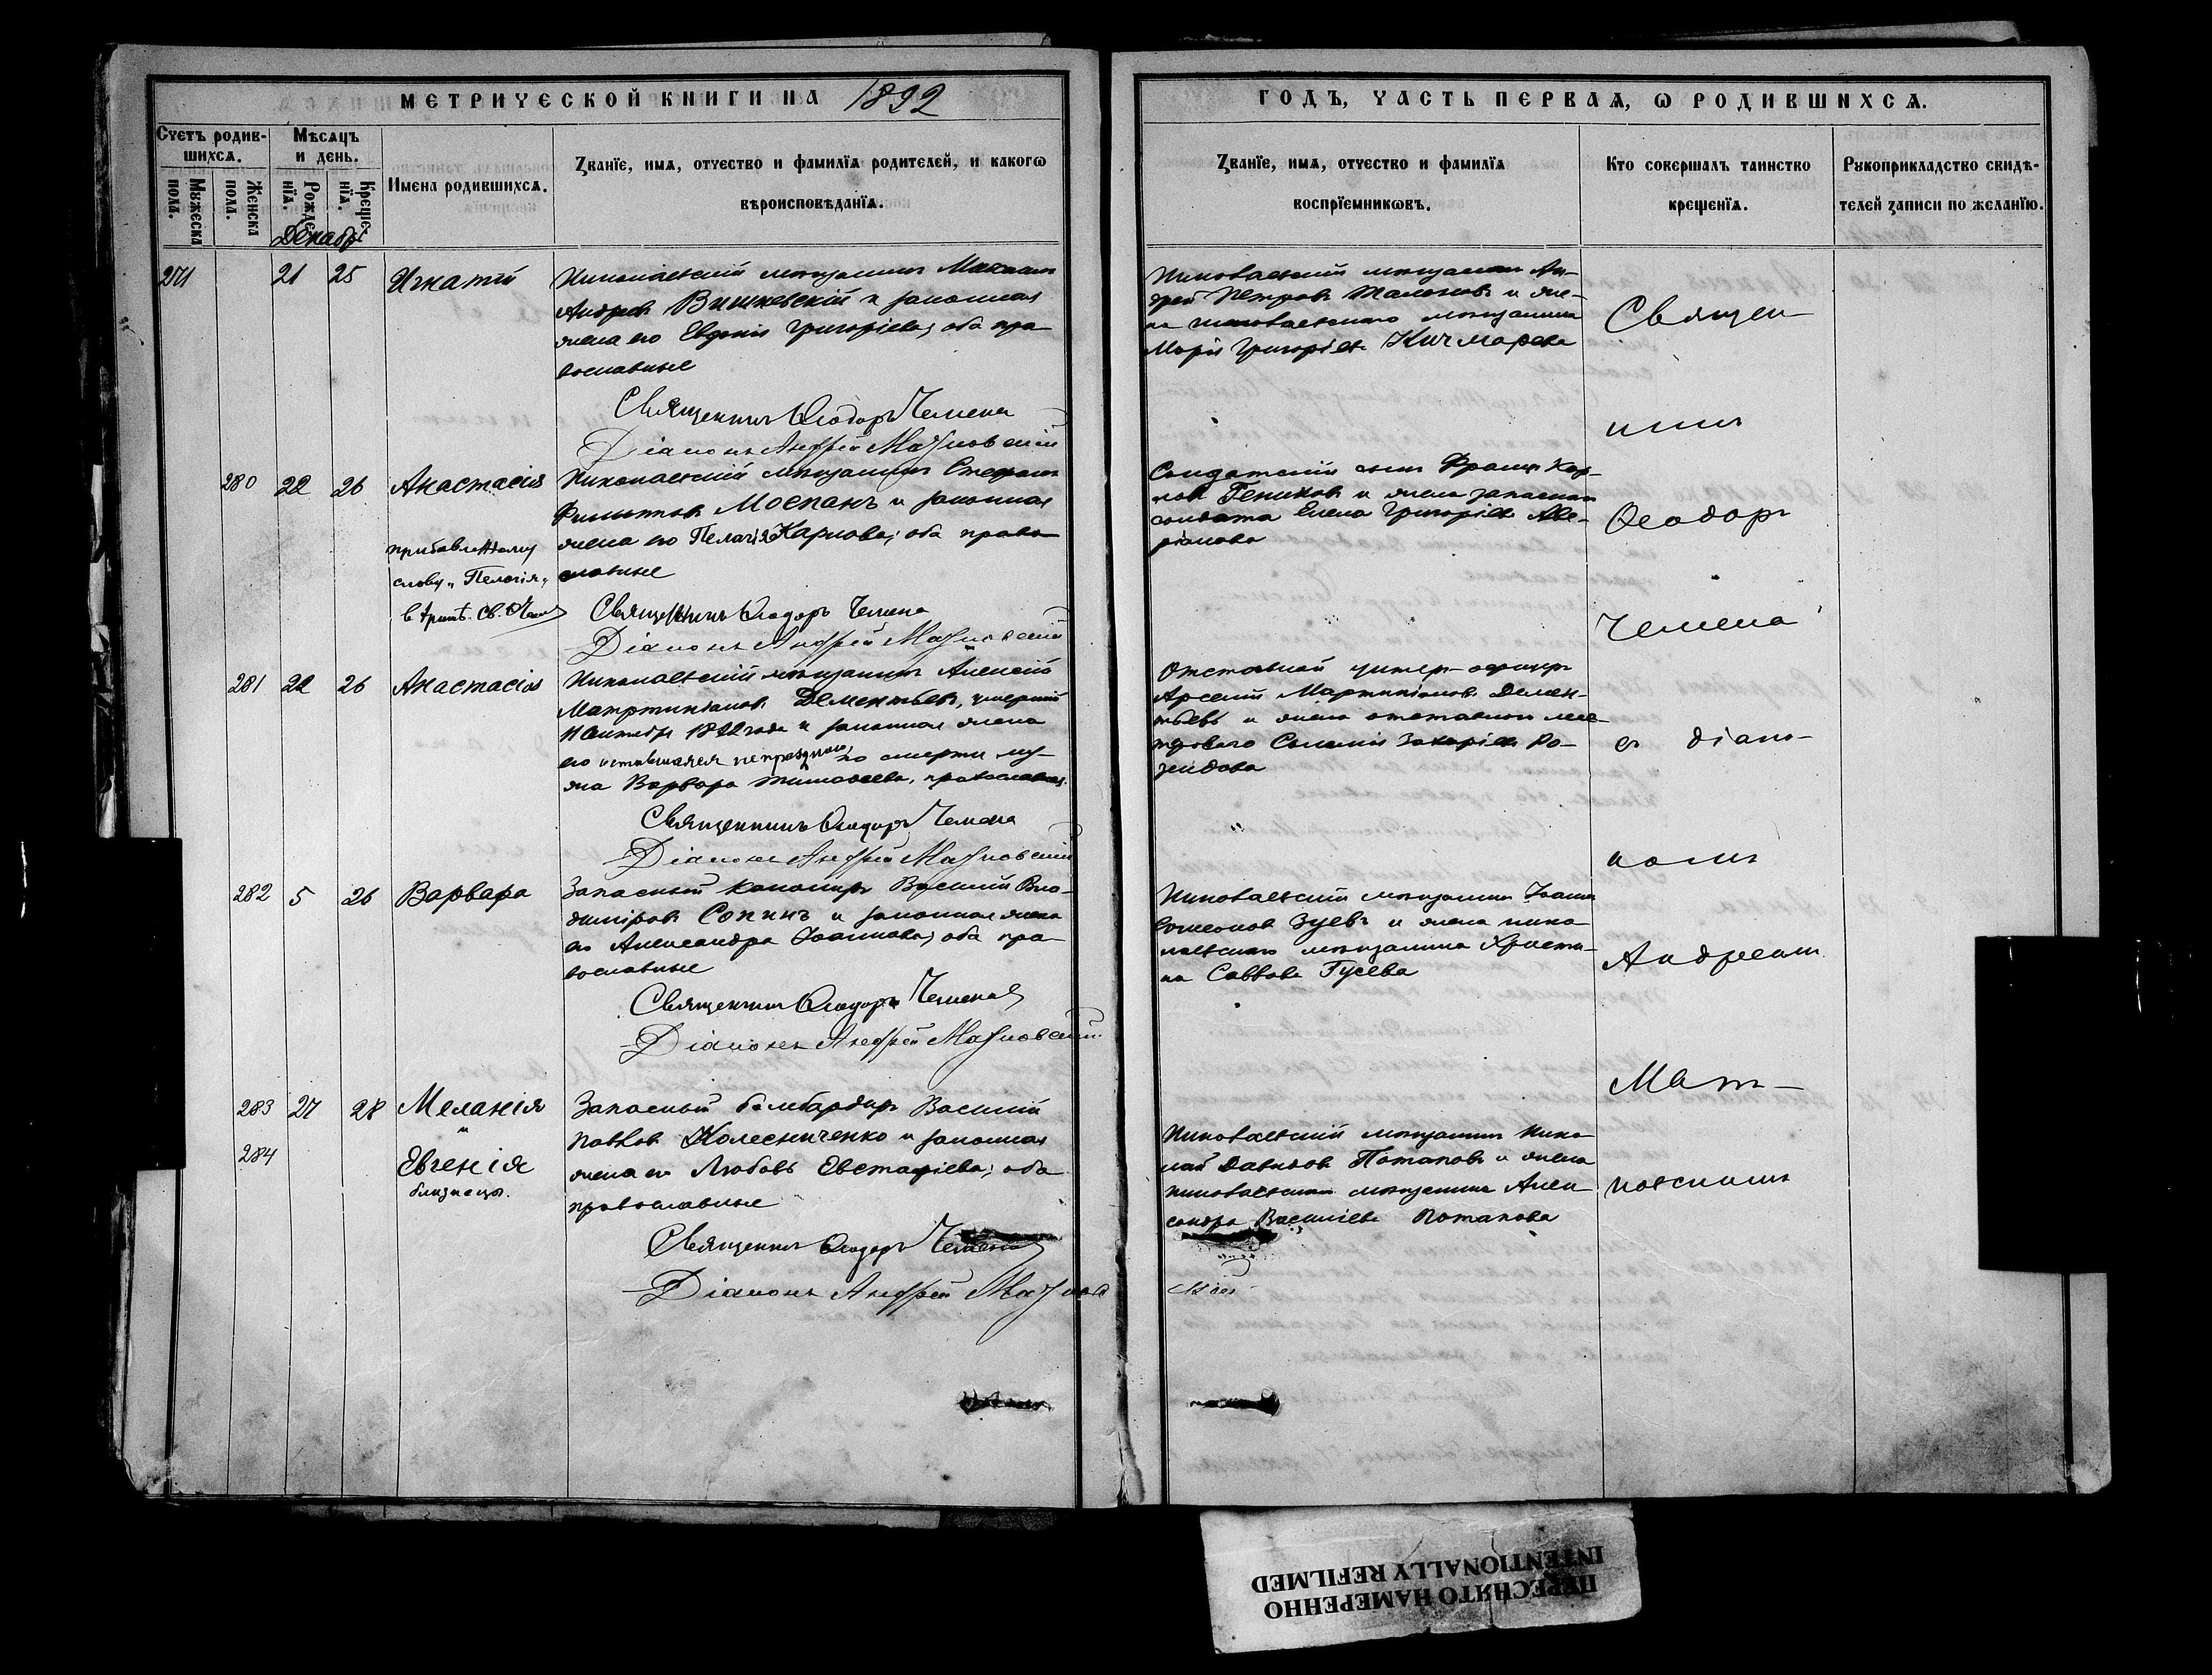 МЕТРИЧЕСКОЙ КНИГИ НА 1892
ГОДЪ, ЧАСТЬ ПЕРВАѦ, Ѡ РОДИВШИХСѦ.
Счетъ родив-
шихсѧ.
Мужеска
пола.
Женска
пола.
Мѣсѧцъ
и день.
Рожде-
нїѧ.
Креще-
нїѧ.
Декабр
Имена родившихсѧ.
Званїе, имѧ, отчество и фамилїѧ родителей, и какогѡ
вѣроисповѣданїѧ.
Званїе, имѧ, отчество и фамилїѧ
воспрїемникѡвъ.
Кто совершалъ таинство
крещенїѧ.
Рукоприкладство свидѣ-
телей записи по желанїю.
271 21 25 Игнатій
Николаевскій мѣщанинъ Максимъ
Андреевъ Вишневскій и законная
жена его Евдокія Григоріева; оба пра
вославные
Священникъ Ѳеодоръ Чемена
Діаконъ Андрей
Николаевскій мѣщанинъ Ан-
дрей Петровъ и же-
на николаевскаго мѣщанина
Марія Григоріева Кичмарева
280 22 26 Анастасія
прибавленному
слову „Пелагія„
вѣрить. Св.
Николаевскій мѣщанинъ Стефанъ
Филиповъ Моспанъ и законная
жена его Пелагія Карпова; оба право
славные
Священникъ Ѳеодоръ Чемена
Діаконъ Андрей
Солдатскій сынъ Францъ Кар-
повъ и жена запаснаго
солдата Елена Григоріева Аве-
ріанова
281 22 26 Анастасія
Николаевскій мѣщанинъ Алексій
Матртиніановъ Дементьевъ, умершій
11 Сентября 1892 года и законная жена
его оставшаяся непраздною, по смерти му-
жа Варвара Тимоѳеева, православная.
Священникъ Ѳеодоръ Чемена
Діаконъ Андрей
Отставной унтеръ-офицеръ
Арсеній Мартиніановъ Демен-
тьевъ и жена отставнаго
Соломія Захаріева Ро-
282 5 26 Варвара
Запасный канониръ Василій Вла-
диміровъ Сопинъ и законная жена
его Александра Іоаннова; оба пра
вославные
Священникъ Ѳеодоръ Чемена
Діаконъ Андрей
Николаевскій мѣщанинъ Іоаннъ
Симеоновъ Зуевъ и жена нико
лаевскаго мѣщанина Христи-
на Саввова Гусева
283 27 28 Меланія
и
284 Евгенія
близнецы.
Запасный бомбардиръ Василій
Павловъ Колесниченко и законная
жена его Любовь Евстафіева; оба
православные
Священникъ Ѳеодоръ Чемена
Діаконъ Андрей
Николаевскій мѣщанинъ Нико
лай Давидовъ Потаповъ и жена
николаевскаго мѣщанина Алек
сандра Василіева Потапова
Священ-
никъ
Ѳеодоръ
Чемена
съ діако-
номъ
Андреемъ
Мат-
ПЕРЕСНЯТО НАМЕРЕННО
INTENTIONALLY REFILMED